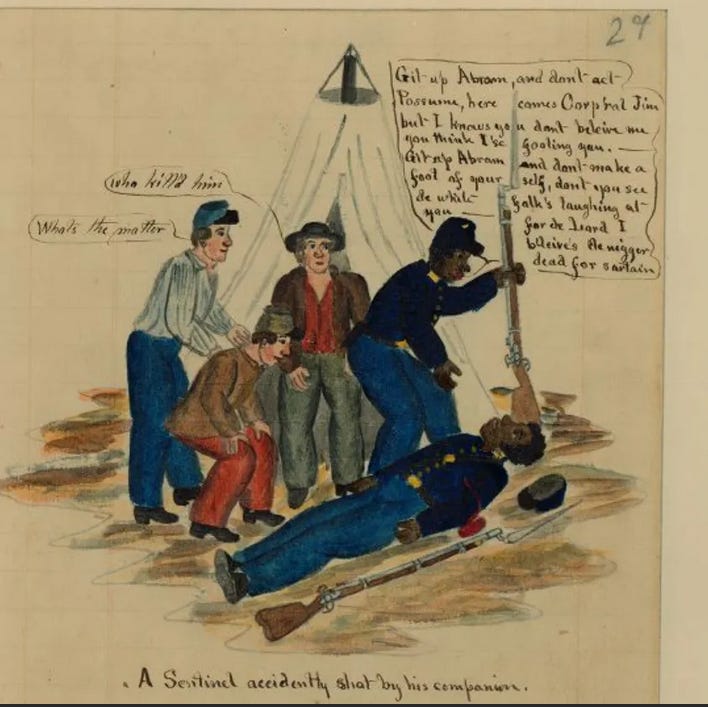 24
Git up Abram, and dont act
Possum, here comes Corpral Jim
but I knows you dont beleive me
you think I'se fooling you. —
Git up Abram and dont make a
fool of your self, dont you see
de white folk's laughing at
you — for de Lord I
bleive's de nigger
dead for sartain
who kill'd him
Whats the matter
A Sentinel accidently shot by his companion.